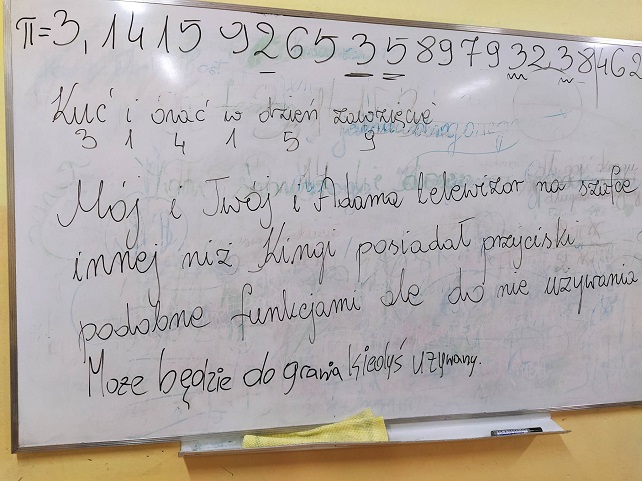 π=3,1415 9265 358979 32 38 462
Kuć i orać w dzień zawzięcie
3 1 4 1 5 9
Mój i Twój i Adama telewizor na szafce
innej niż Kingi posiadał przyciski
podobne funkcjami ale do nie używania
Może będzie do grania kiedyś używany.